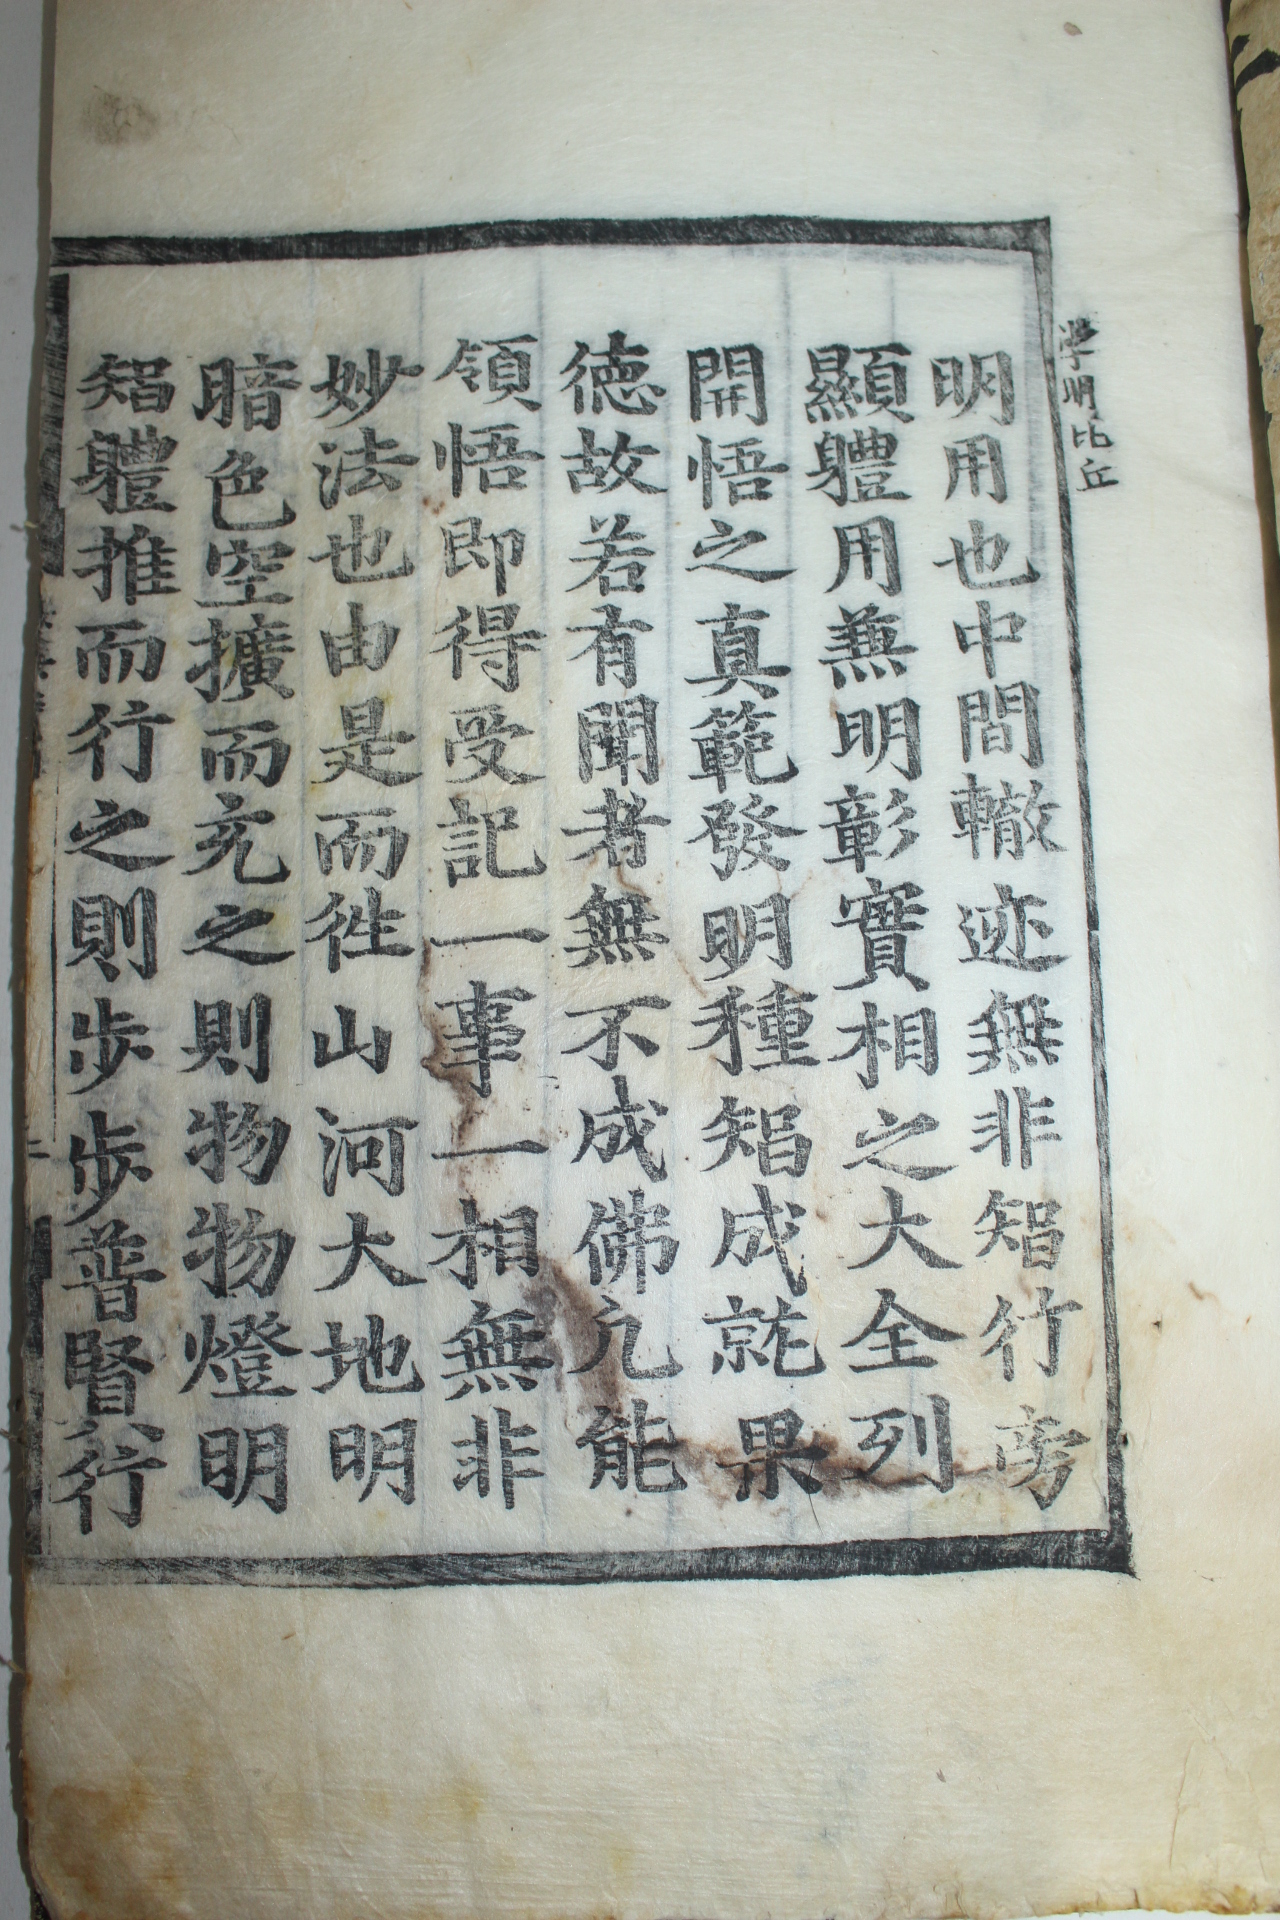 学明比丘
明用也中間轍迹無非智行旁
顯軆用兼明彰實相之大全列
開悟之真範發明種智成就果
德故若有聞者無不成佛凢能
領悟即得受記一事一相無非
妙法也由是而徃山河大地明
暗色空擴而充之則物物燈明
智軆推而行之則步步普賢行